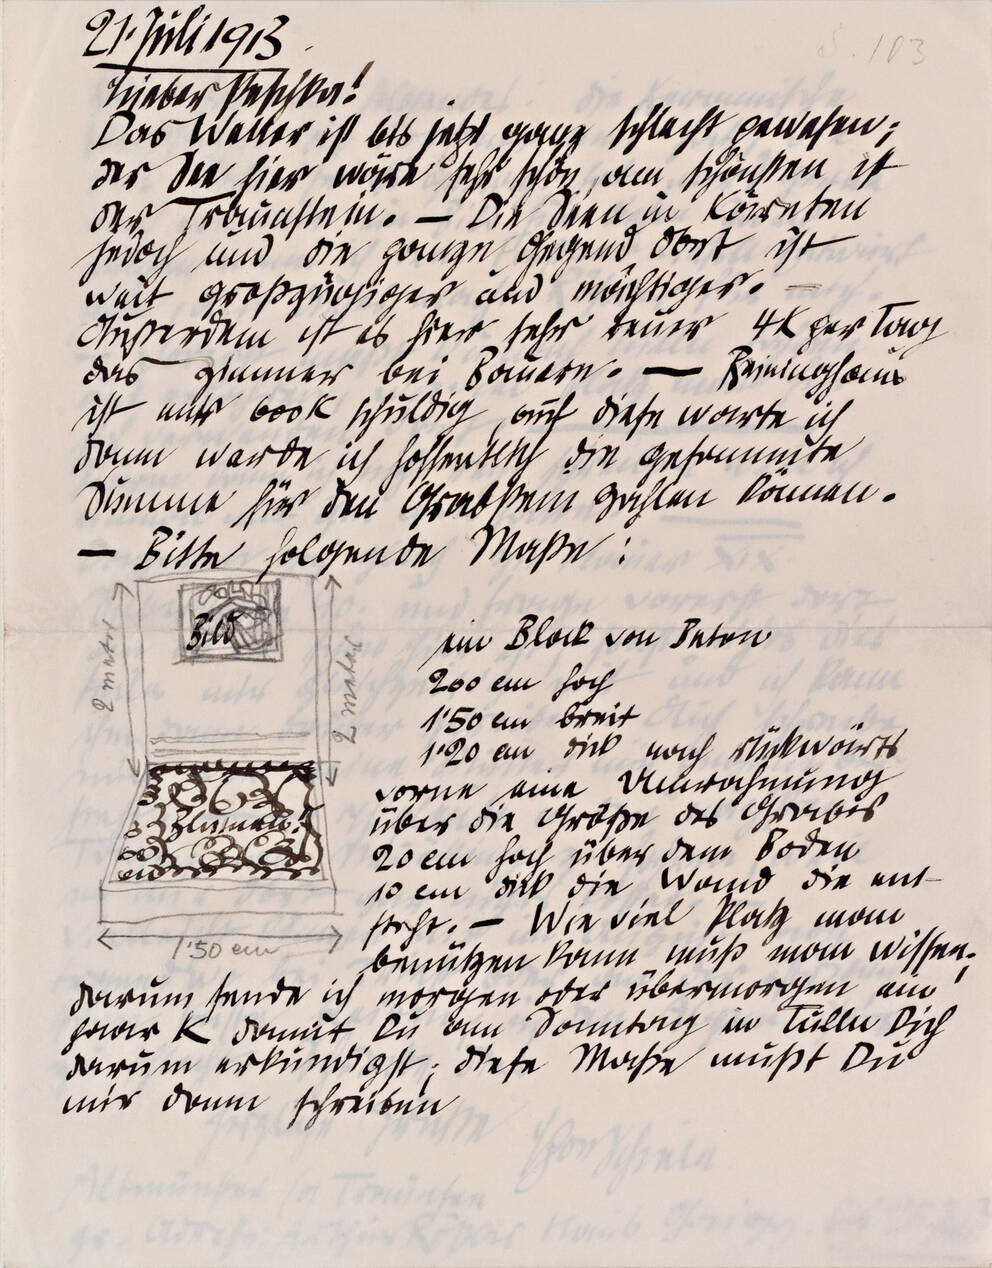 21. Juli 1913.
S. 103
Lieber Peschka!
Das Wetter ist bis jetzt ganz schlecht gewesen;
der See hier wäre sehr schön, am schönsten ist
der Traunstein. — Die Seen in Kärnten
jedoch und die ganze Gegend dort ist
weit großzügiger und mächtiger. —
Außerdem ist es hier sehr teuer 4K per Tag
das Zimmer bei Bauern. — Reininghaus
ist mir 600K schuldig, auf diese warte ich
dann werde ich hoffentlich die gesammte
Summe für den Grabstein zahlen können.
— Bitte folgende Maße:
Bild
2 meter
2 meter
Blumen!
1'50 cm
ein Block von Beton
200 cm hoch
1'50 cm breit
1'20 cm dick nach rückwärts
vorne eine Umrahmung
über die Größe des Grabes
20 cm hoch über dem Boden
10 cm dick die Wand die ent-
steht. — Wie viel Platz man
benützen kann muß man wissen;
darum sende ich morgen oder übermorgen ein
paar K damit Du am Sonntag in Tulln Dich
darum erkundigst; diese Maße mußt Du
mir dann schreiben